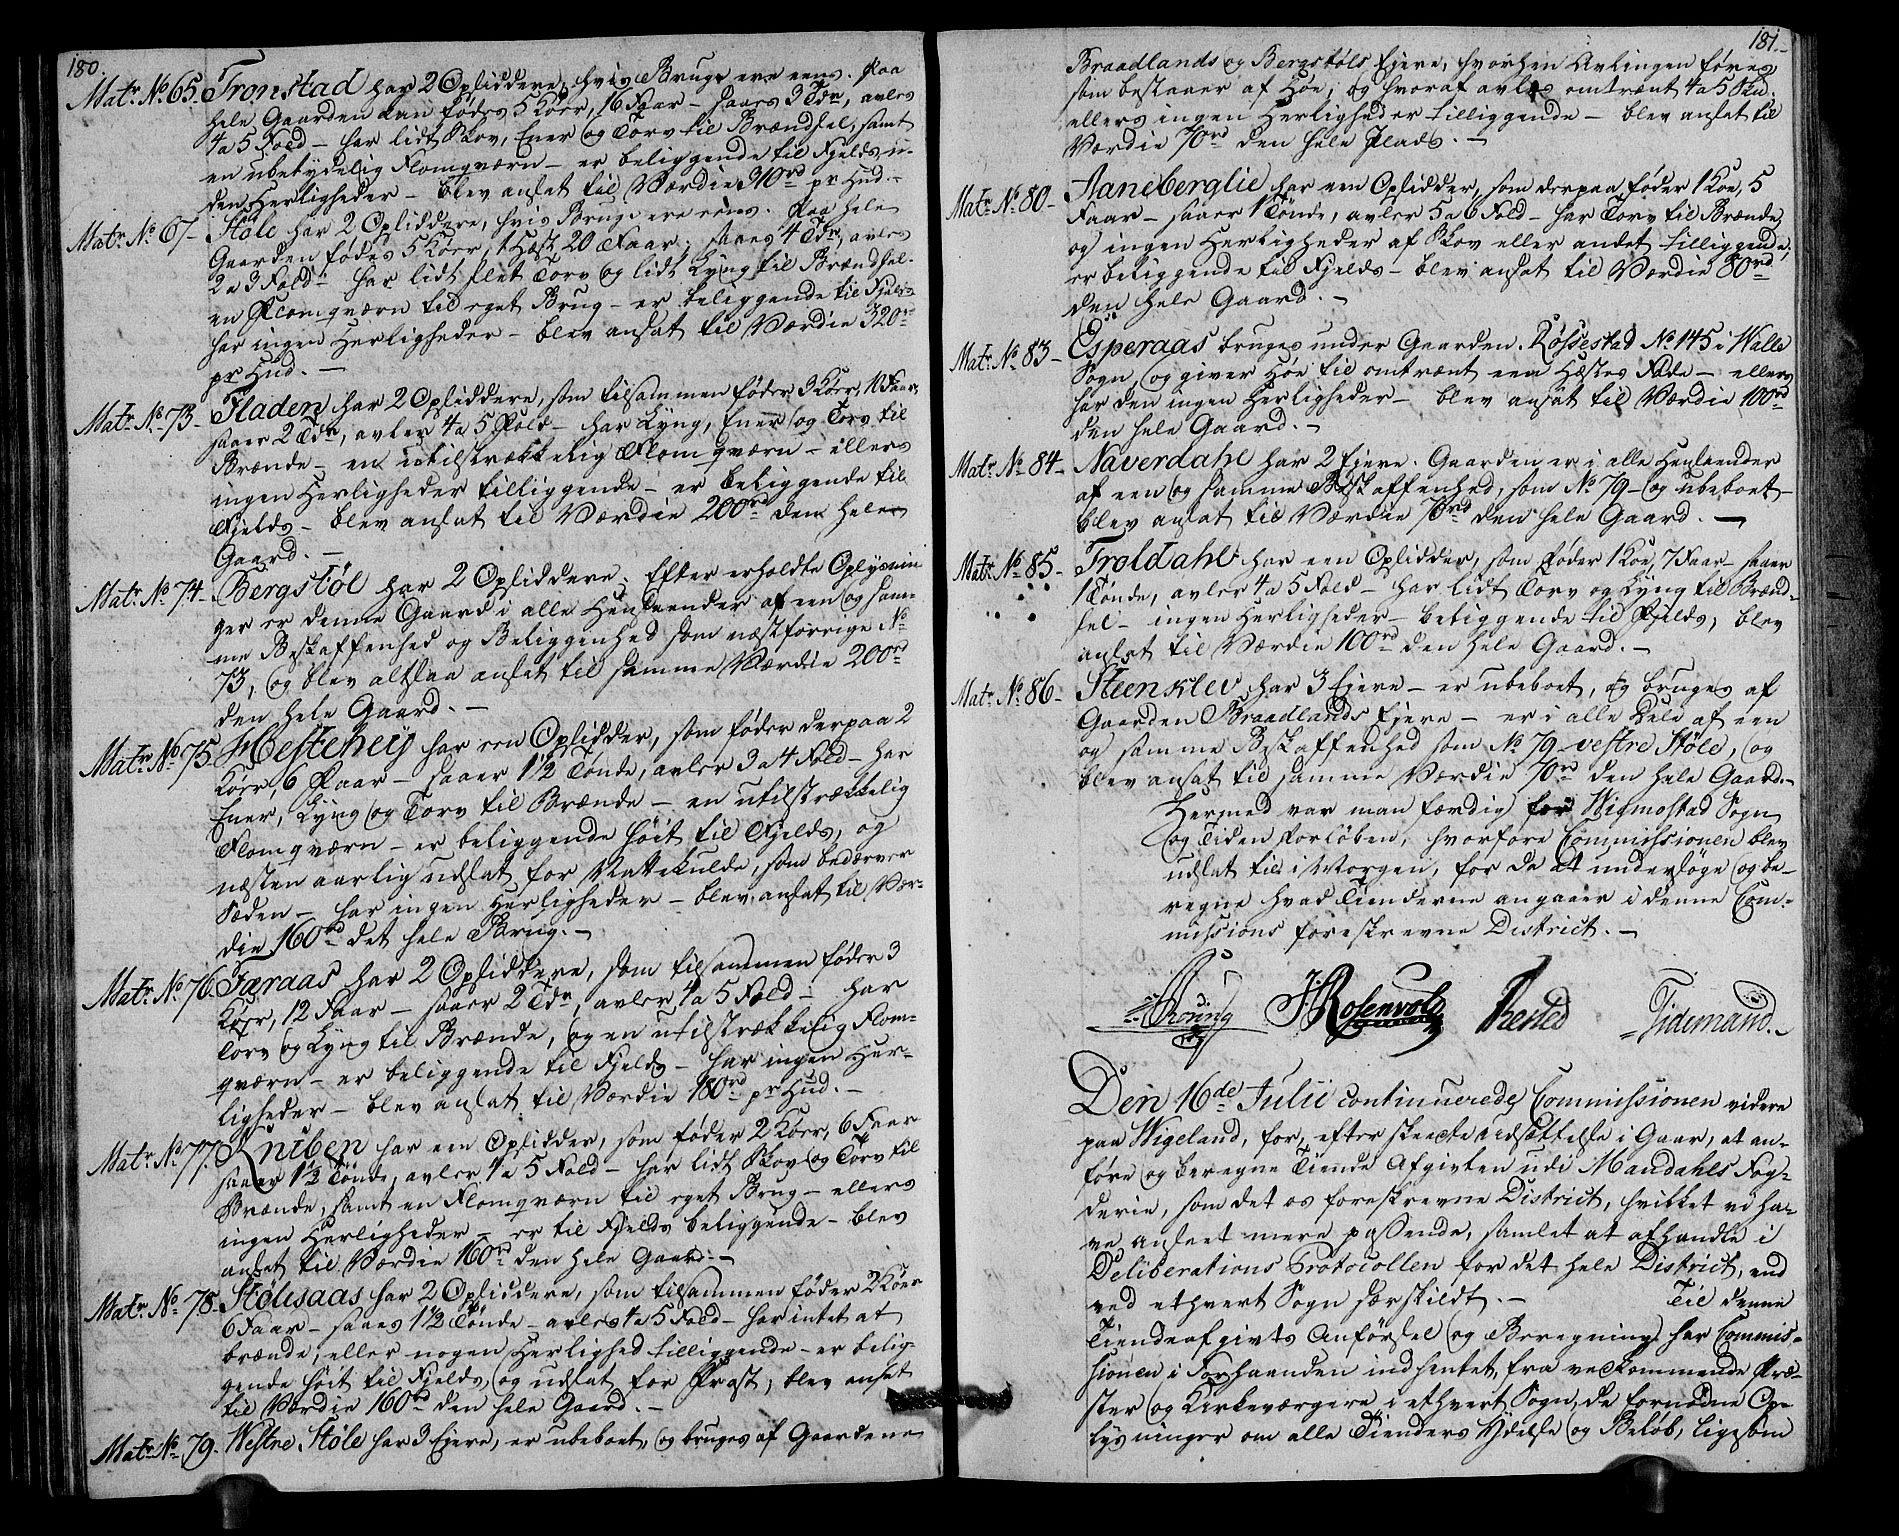 180.
Matr. No. 65. Tronstad har 2 Opsiddere, hvis Bruge ere eens. Paa
hele Gaarden kan fødes 5 Køer, 16 Faar – saaes 3 Tdr, avles
4 a 5 Fold – har lidt Skov, Ener og Torv til Brændsel, samt
en ubetydelig Flomqværn – er beliggende til Fjelds, u-
den Herligheder – blev ansat til Værdie 310rd pr Hud. –
Matr. No. 67 – Støle har 2 Opsiddere, hvis Bruge ere eens. Paa hele
Gaarden fødes 5 Køer, 1 Hæst, 20 Faar, saaes 4 Tdr, avles
2 a 3 Fold – har lidt slet Torv og lidt Lyng til Brændsel –
en Flomqværn til eget Brug – er beliggende til Fjelds
har ingen Herligheder – blev ansat til Værdie 320rd
pr Hud. –
Matr. No. 73 – Fladen har 2 Opsiddere, som tilsammen føder 3 Køer, 10 Faar,
saaer 2 Tdr, avler 4 a 5 Fold – har Lyng, Ener og Torv til
Brænde – en utilstrækkelig Flomqværn – ellers
ingen Herligheder tilliggende – er beliggende til
Fjelds – blev ansat til Værdie 200rd den hele
Gaard. –
Matr. No. 74 – Bergstøl har 2 Opsiddere. Efter erholdte Oplysnin-
ger er denne Gaard i alle Henseender af een og sam-
me Beskaffenhed og Beliggenhed som næstforrige No
73, og blev altsaa ansat til samme Værdie 200rd
den hele Gaard. –
Matr. No. 75. Hesteheij har een Opsidder, som føder derpaa 2
Køer, 6 Faar – saaer 1½ Tønde, avler 3 a 4 Fold – har
Ener, Lyng og Torv til Brænde – en utilstrækkelig
Flomqværn – er beliggende høit til Fjelds, og
næsten aarlig udsat for Nattekulde, som bedærver
Sæden – har ingen Herligheder – blev ansat til Vær-
die 160rd det hele Brug. –
Matr. No. 76. Færaas har 2 Opsiddere, som tilsammen føder 3
Køer, 12 Faar – saaer 2 Tdr, avler 4 a 5 Fold – har
Torv og Lyng til Brænde, og en utilstrækkelig Flom-
qværn – er beliggende til Fjelds – har ingen Her-
ligheder – blev ansat til Værdie 180rd pr Hud. –
Matr. No. 77. Kniben har een Opsidder, som føder 2 Køer, 6 Faar
saaer 1½ Tønde, avler 4 a 5 Fold – har lidt Skov og Torv til
Brænde, samt en Flomqværn til eget Brug – ellers
ingen Herligheder – er til Fjelds beliggende – blev
ansat til Værdie 160rd den hele Gaard. –
Matr. No. 78 – Stølisaas har 2 Opsiddere, som tilsammen føder 2 Køer
6 Faar – saaes 1½ Tønde – avles 4 a 5 Fold – har intet at
brænde, eller nogen Herlighed tilliggende – er belig-
gende høit til Fjelds, og udsat for Frost, blev ansat
til Værdie 160rd den hele Gaard. –
Matr. No. 79. Westre Støle har 3 Ejere, er ubeboet, og bruges af Gaardene
181.
Braadlands og Bergstøls Ejere, hvorhen Avlingen føres,
som bestaaer af Høe, og hvoraf avles omtrent 4 a 5 Skd.
ellers ingen Herligheder tilliggende – blev ansat til
Værdie 70rd den hele Plads. –
Matr. No. 80 – Aaneberglie har een Opsidder, som derpaa føder 1 Koe, 5
Faar – saaer 1 Tønde, avler 5 a 6 Fold – har Torv til Brænde,
og ingen Herligheder af Skov eller andet tilliggende,
er beliggende til Fjelds – blev ansat til Værdie 80rd
den hele Gaard. –
Matr. No. 83 – Esperaas bruges under Gaarden Røssestad No 145 i Walle
Sogn, og giver Høe til omtrent een Hæstes Føde – ellers
har den ingen Herligheder – blev ansat til Værdie 100rd
den hele Gaard. –
Matr. No. 84 – Naverdahl har 2 Ejere. Gaarden er i alle Henseender
af een og samme Beskaffenhed, som No. 79 – og ubeboet –
blev ansat til Værdie 70rd den hele Gaard. –
Matr. No. 85 – Troldahl har een Opsidder, som føder 1 Koe, 7 Faar – saaer
1 Tønde, avler 4 a 5 Fold – har lidt Torv og Lyng til Brænd-
sel – ingen Herligheder – beliggende til Fjelds, blev
ansat til Værdie 100rd den hele Gaard. –
Matr. No. 86 – Steenklev har 3 Ejere – er ubeboet, og bruges af
Gaarden Braadlands Ejere – er i alle Dele af een
og samme Beskaffenhed som No. 79 – vestre Støle, og
blev ansat til samme Værdie 70rd den hele Gaard. –
Hermed var man færdig for Wigmostad Sogn
og Tiden forløben, hvorfore Commissionen blev
udsat til i Morgen, for da at undersøge og be-
regne hvad Tienderne angaaer i denne Com-
missions foreskrevne District. –
Rosenvold Tidemand. –
Den 16de Julii continuerede Commissionen videre
paa Wigeland, for, efter skeete Udsættelse i Gaar, at an-
føre og beregne Tiende Afgivten udi Mandahls Fog-
derie, som det os foreskrevne District, hvilket vi ha-
ve anseet mere passende, samlet at afhandle i
Deliberations Protocollen for det hele District, end
ved ethvert Sogn særskildt. – Til denne
Tiendeafgivts Anførsel og Beregning har Commis-
sionen i Forhaanden indhentet, fra vedkommende Præ-
ster og Kirkeværgere i ethvert Sogn, de fornødne Op-
lysninger om alle Tienders Ydelse og Beløb, ligesom